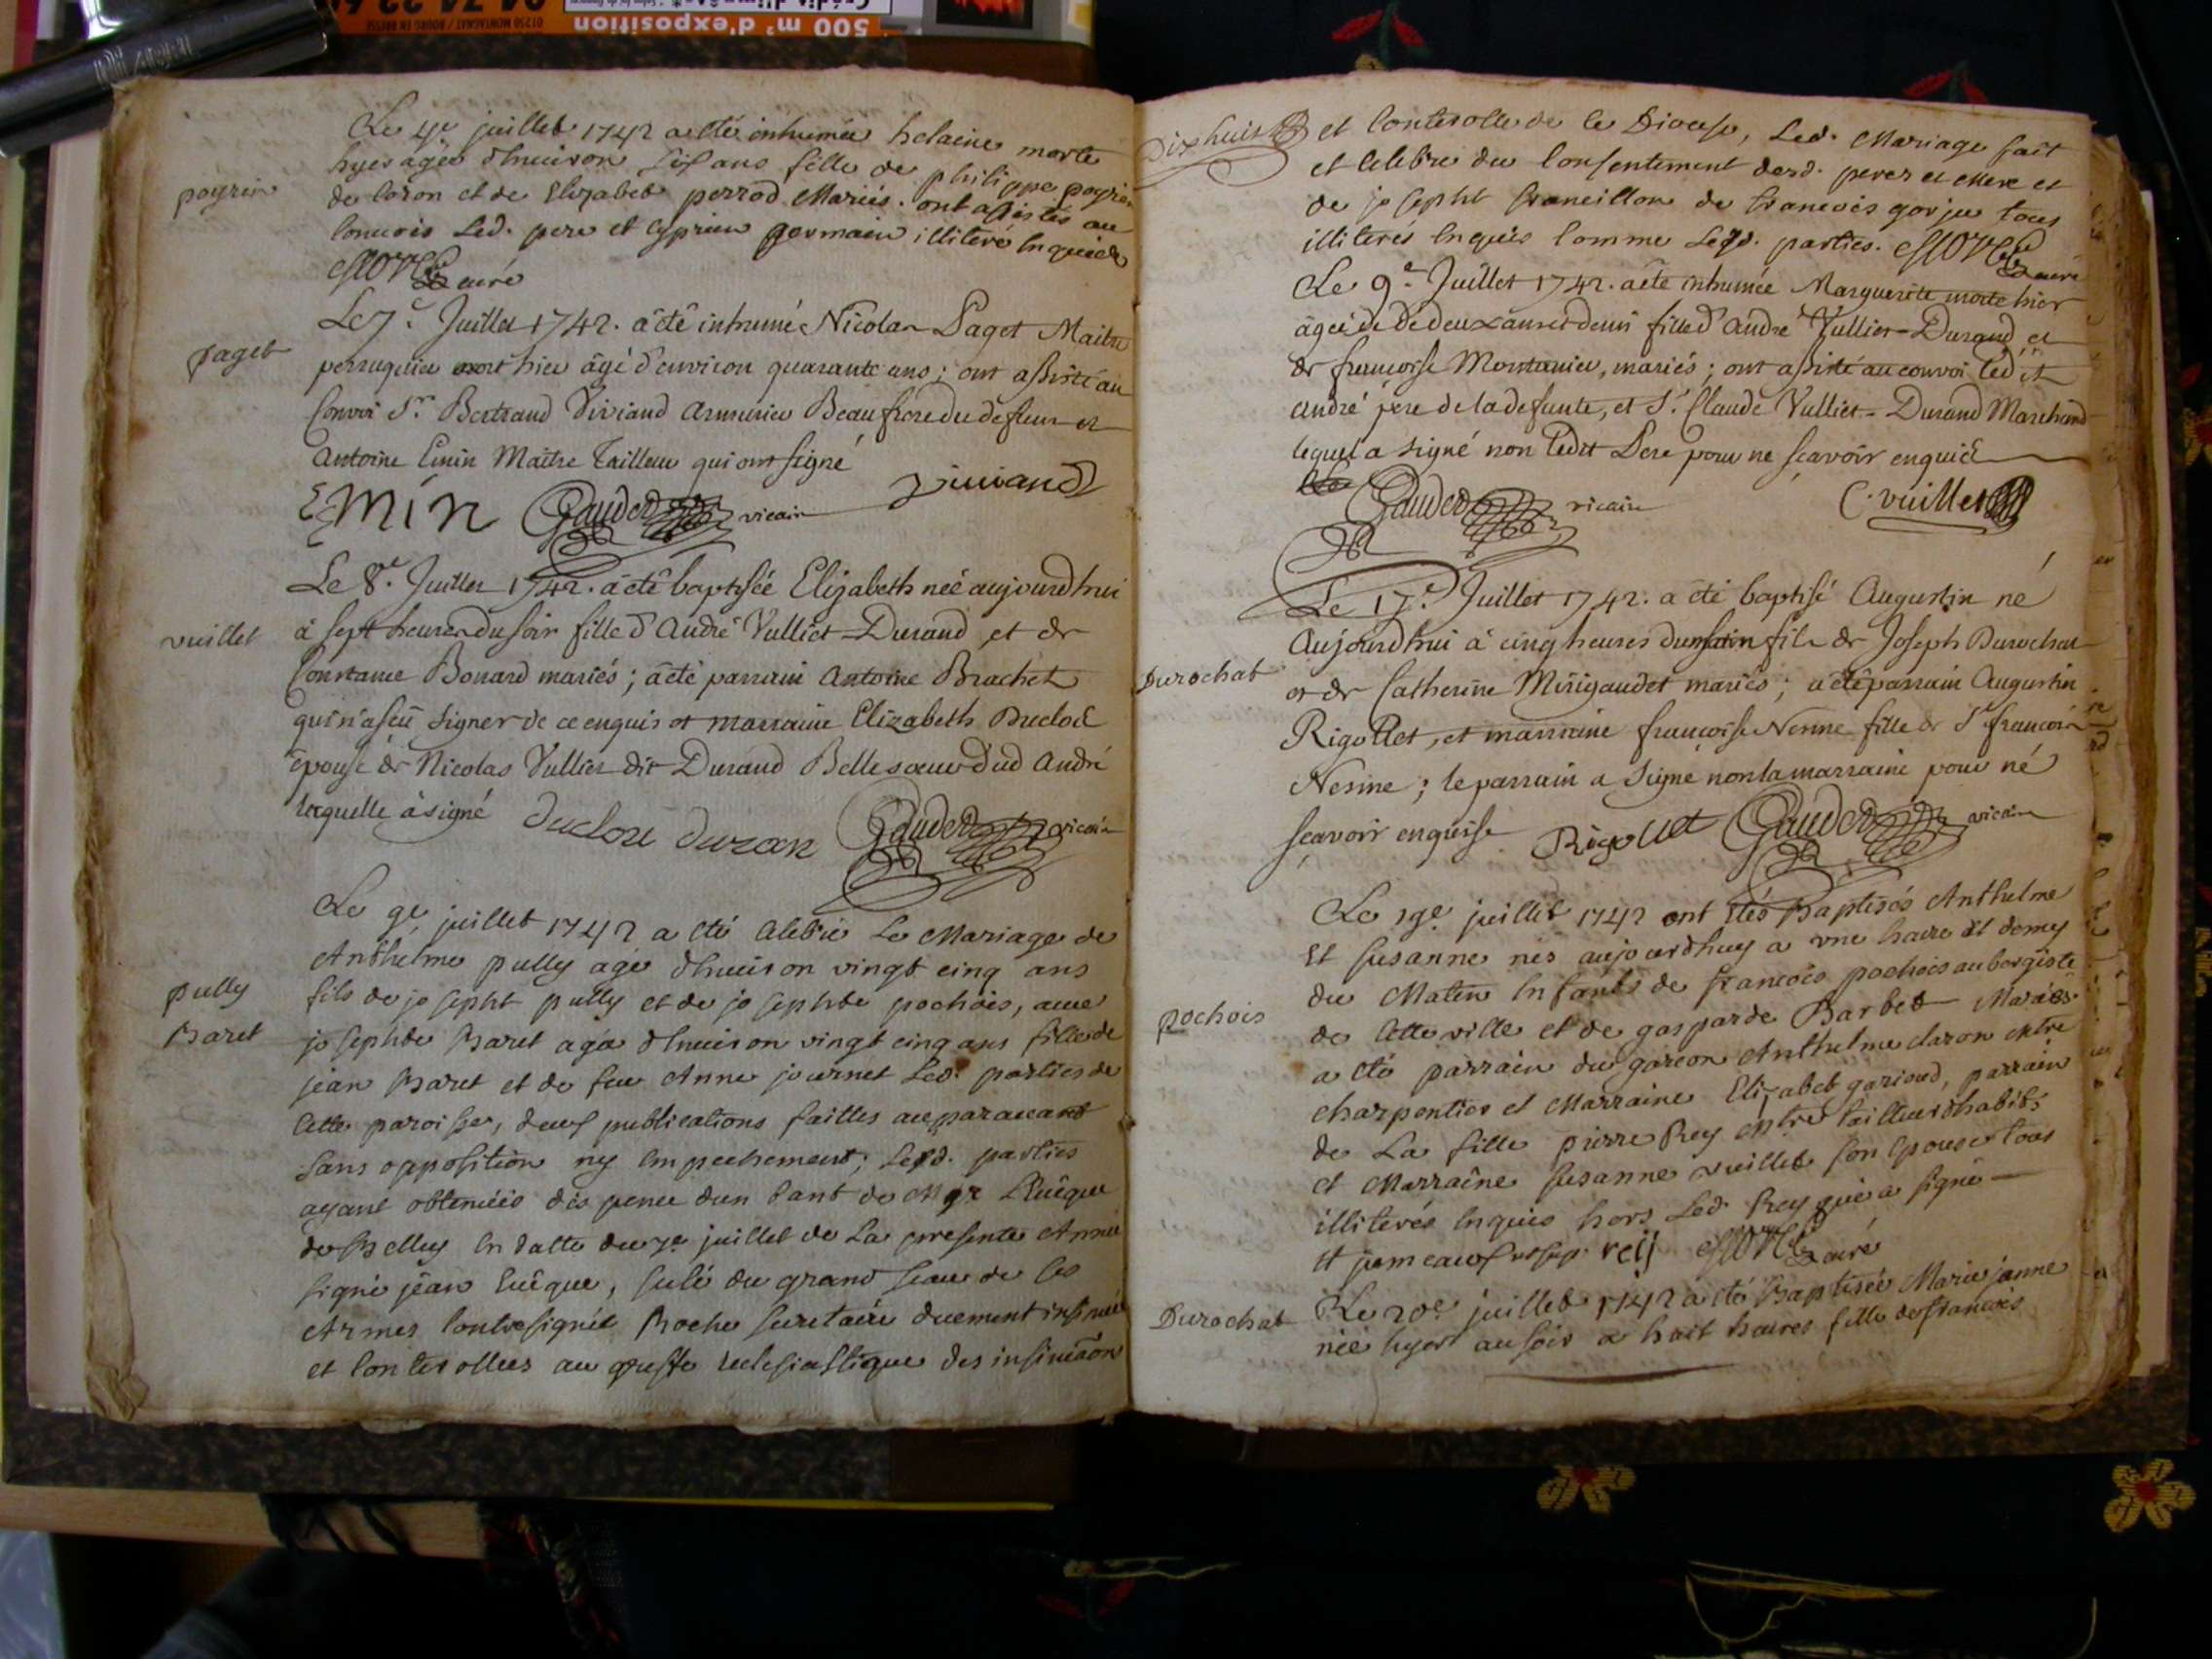 500 m² d'exposition
01250 MONTAGNAT / BOURG EN BRESSE
Le 4e juillet 1742 a eté inhumée helaine morte
hyer agée d'hnuiron six ans fille de philippe poyrin
de loron et de Elizabet perrod Mariés. ont assistés au
Conuois Led. pere et cyprien germain illiteré Enquis
curé
poyrin
Le 7e. Juillet 1742. a été inhumé Nicolas Paget Maitre
perruquier mort hier âgé d'environ quarante ans; ont assisté au
Convoi Sr. Bertrand Viviand Armurier Beaufrere du defunt et
Antoine Emin Maitre Tailleur qui ont signé
paget
Emin Gauder vicair viuiand
Le 8e. Juillet 1742. a été baptisée Elizabeth neé aujourdhui
à sept heures du soir fille d'André Vulliet-Durand et de
Constance Bonard mariés; a été parrain Antoine Brachet
qui n'a sçu signer de ce enquis et marraine Elizabeth Duclos
épouse de Nicolas Vulliet dit Durand Bellesoeur dud André
laquelle a signé duclou duran Gauder vicair
vuillet
Le 9e juillet 1742 a eté Celebré Le Mariage de
Anthelme pully agé d'hnuiron vingt cinq ans
fils de josepht pully et de josephte pochois, auec
josephte Baret agée d'hnuiron vingt cinq ans fille de
jean Baret et de feu Anne journet Led. parties de
Cette paroisse, deux publications faittes auparauant
sans opposition ny Empechement; Lesd. parties
ayant obtenuës dispence d'un Bant de Mgr L'Euêque
de Belley En datte du 7e juillet de La presente Année
signé jean Euêque, sclé du grand sceau de ses
Armes Contresigné Roche secretaire duement insinuée
et Contrerollées au greffe ecclesiastique des insinuaõns
pully
Baret
Dixhuit et Contrerolle de ce Diocese, Led. Mariage fait
et Celebré du Consentement desd. peres et Mere et
de josepht francillon de francois gorju tous
illiterés Enquis Comme Lesd. parties. curé
Le 9e. Juillet 1742. a été inhumée Marguerite morte hier
âgée de de deux ans et demi fille d'André Vulliet-Durand et
de françoise Montanier, mariés; ont assisté au convoi led it
André père de la defunte, et Sr. Claude Vulliet-Durand Marchand
lequel a signé non ledit Pere pour ne sçavoir enquis
Gauder vicair C. vuillet
Le 17e. Juillet 1742. a été baptisé Augustin né
Aujourdhui à cinq heures du matin fils de Joseph Durochat
et de Catherine Mirigaudet mariés; a été parrain Augustin
Rigollet, et marraine françoise Nerine fille de Sr françois
Nerine; le parrain a signé non la marraine pour ne
sçavoir enquise Rigollet Gauder vicair
Durochat
Le 19e juillet 1742 ont etés Baptisés Anthelme
Et susanne nés aujourdhuy a vne heure et demy
du Matin Enfants de francois pochois aubergiste
de Cette ville et de gasparde Barbet Mariés
a eté parrain du garcon Anthelme claron mtre
charpentier et Marraine Elizabet gariond, parrain
de La fille pierre Rey mtre tailleur d'habits
et Marraine susanne vuillet son Epouse tous
illiterés Enquis hors Led. Rey qui a signé
reij curé
pochois
Le 20e juillet 1742 a eté Baptisée Marie janne
née hyer au soir a huit heures fille de francois
Durochat